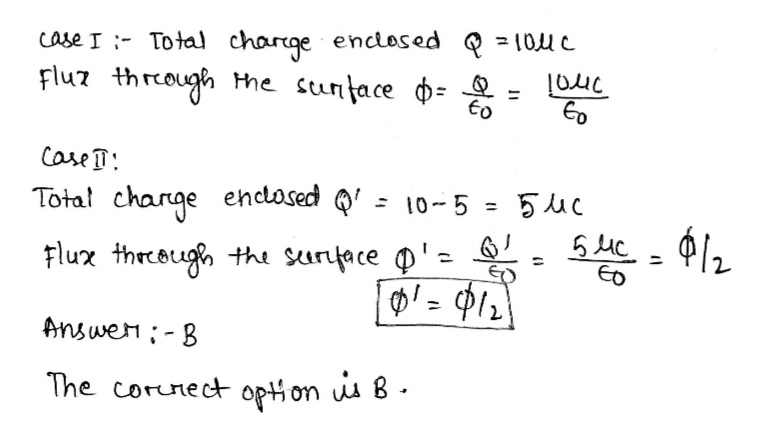 Case I :- Total charge enclosed Q = 10μc
Flux through the surface ϕ = Q/ϵ0 = 10μc/ϵ0
Case II:
Total charge enclosed Q' = 10-5 = 5 μc
Flux through the surface ϕ' = Q'/ϵ0 = 5 μc/ϵ0 = ϕ/2
ϕ' = ϕ/2
Answer :- B
The correct option is B.